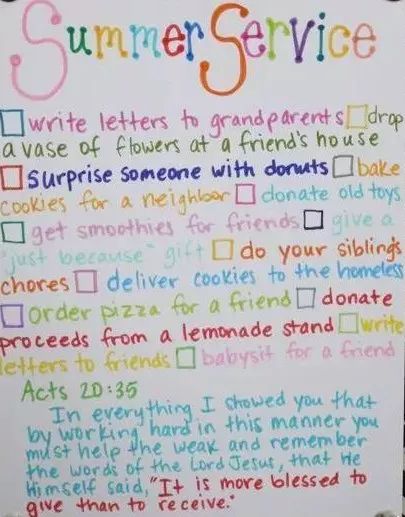 Summer Service
☐ write letters to grandparents ☐ drop
a vase of flowers at a friend's house
☐ Surprise someone with donuts ☐ bake
cookies for a neighbor ☐ donate old toys
☐ get smoothies for friends ☐ give a
"just because" gift ☐ do your siblings
chores ☐ deliver cookies to the homeless
☐ order pizza for a friend ☐ donate
proceeds from a lemonade stand ☐ write
letters to friends ☐ babysit for a friend
Acts 20:35
In everything I showed you that
by working hard in this manner you
must help the weak and remember
the words of the Lord Jesus, that He
Himself said, "It is more blessed to
give than to receive."